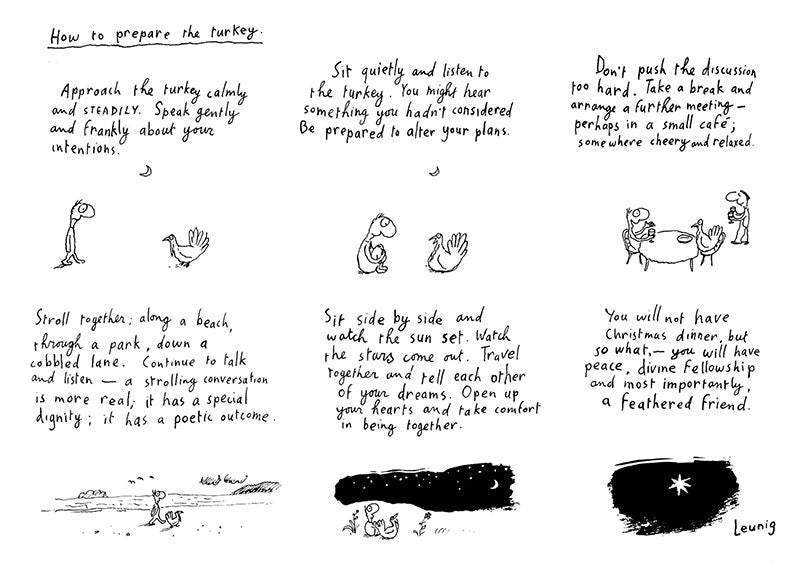 How to prepare the turkey.
Approach the turkey calmly
and STEADILY. Speak gently
and frankly about your
intentions.
Sit quietly and listen to
the turkey. You might hear
something you hadn't considered
Be prepared to alter your plans.
Don't push the discussion
too hard. Take a break and
arrange a further meeting —
perhaps in a small café;
somewhere cheery and relaxed.
Stroll together; along a beach,
through a park, down a
cobbled lane. Continue to talk
and listen — a strolling conversation
is more real; it has a special
dignity; it has a poetic outcome.
Sit side by side and
watch the sun set. Watch
the stars come out. Travel
together and tell each other
of your dreams. Open up
your hearts and take comfort
in being together.
You will not have
Christmas dinner, but
so what, — you will have
peace, divine fellowship
and most importantly,
a feathered friend.
Leunig